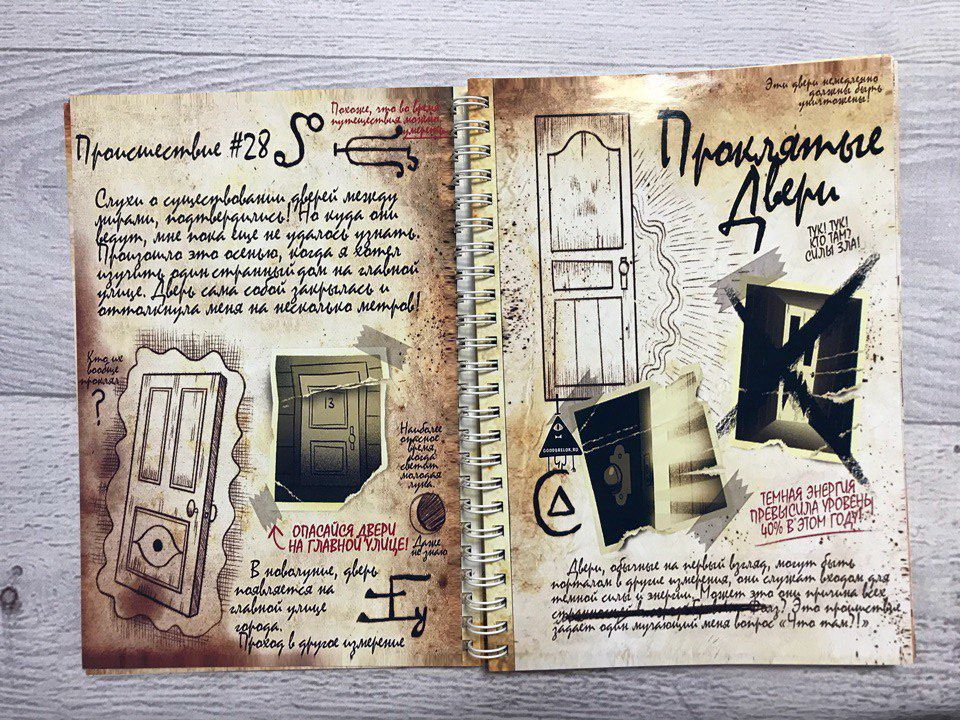 Похоже, что во время
путешествия можно
умереть
Происшествие #28
Слухи о существовании дверей между
мирами, подтвердились! Но куда они
ведут, мне пока еще не удалось узнать.
Произошло это осенью, когда я хотел
изучить один странный дом на главной
улице. Дверь сама собой закрылась и
оттолкнула меня на несколько метров!
Кто их
вообще
проклял
?
13
Наиболее
опасное
время,
когда
светит
молодая
луна.
Даже
не знаю
ОПАСАЙСЯ ДВЕРИ
НА ГЛАВНОЙ УЛИЦЕ!
В новолуние, дверь
появляется на
главной улице
города.
Проход в другое измерение
Эти двери немедленно
должны быть
уничтожены!
Проклятые
Двери
ТУК! ТУК!
КТО ТАМ?
СИЛЫ ЗЛА!
GOODBRELOK.RU
ТЕМНАЯ ЭНЕРГИЯ
ПРЕВЫСИЛА УРОВЕНЬ
40% В ЭТОМ ГОДУ!
Двери, обычные на первый взгляд, могут быть
порталом в другие измерения, они служат входом для
тёмной силы и энергии. Может это они причина всех
странностей в Фолз? Это происшествие
задает один мучающий меня вопрос «Что там?!»